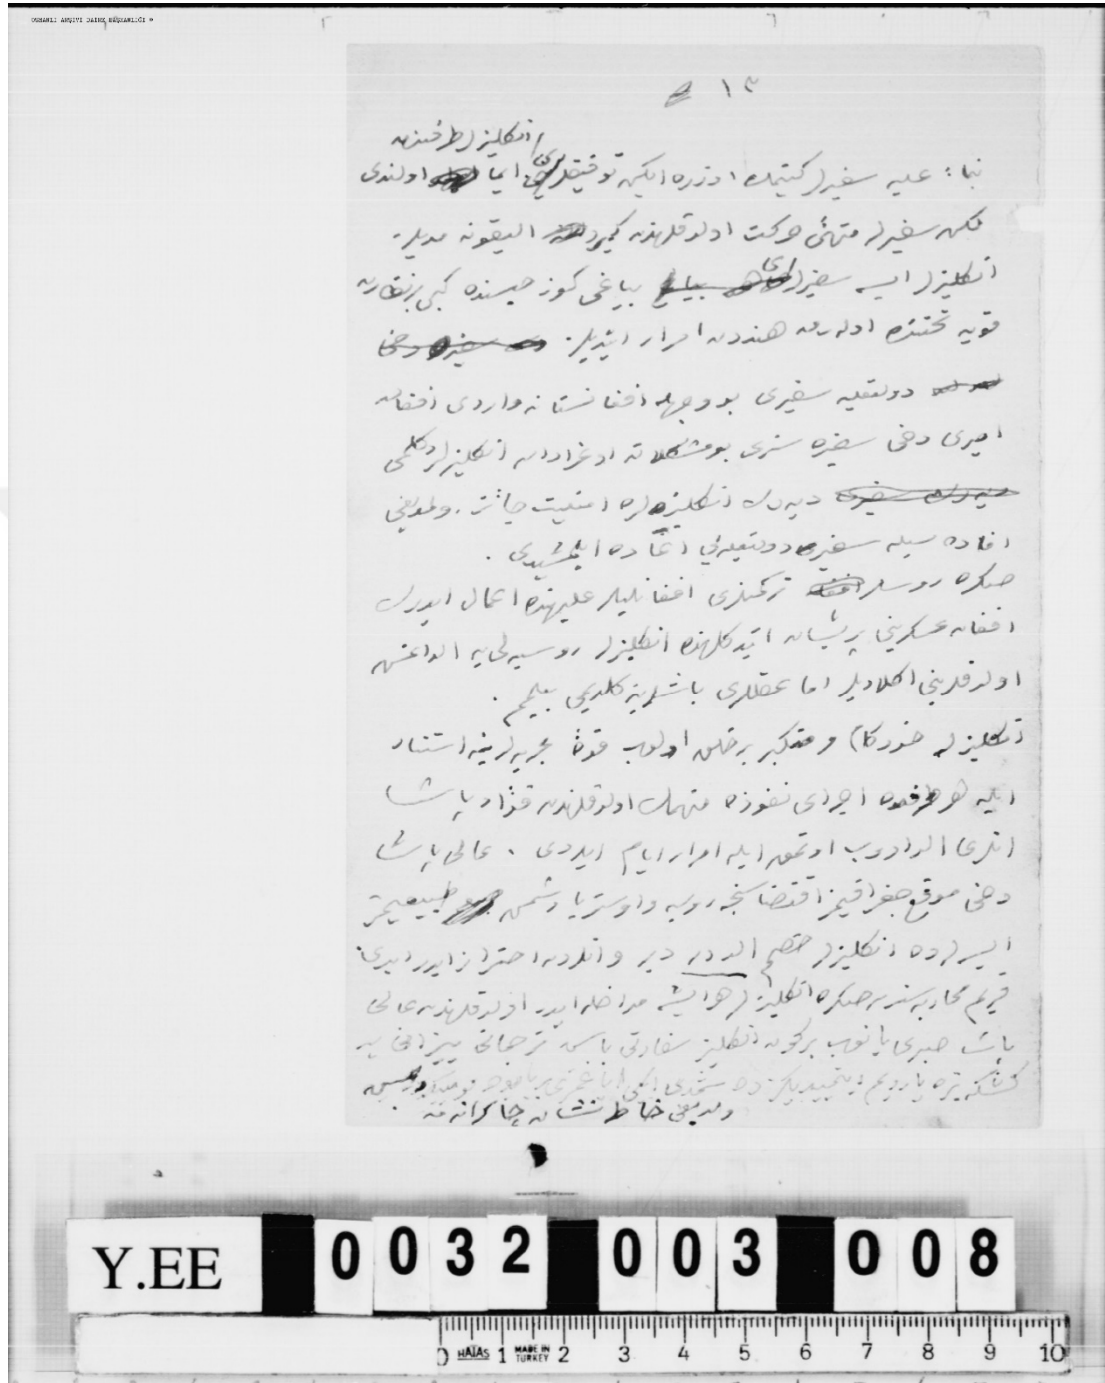 OSMANLI ARŞİVİ DAİRE BAŞKANLIĞI
١٣
انكليزلر طرفندن
بناءً عليه سفيرلر كيتمك اوزره ايكن توقيفلرى ايما اولندى
لكن سفيرلر متهيئ حركت اولدقلرندن اليقونه مديلر.
انكليزلر ايسه سفيرلرى بياغى كوز حبسنده كبى بر نظارت
قويه تحتنده اوله رق هنددن امرار ايتديلر.
دولتعليه سفيرى بو وجهله افغانستانه واردى افغان
اميرى دخى سفيره سزى بو مشكلاته اوغرادان انكليزلر دكلمى
ديه رك انكليزلره امنيت جائز اولمديغنى
افاده سيله سفير دولتعليه يى اعاده ايلمشيدى.
صكره روسلر تركمنلرى افغانليلر عليهنده اعمال ايدرك
افغان عسكرينى پريشان ايتدكلرنده انكليزلر روسيه لى يه الدانمش
اولدقلرينى اكلاديلر اما عقللرى باشلرينه كلديمى بيلمم.
انكليزلر خودكام و متكبر بر خلق اولوب قوۀ بحريه لرينه استناد
ايله هر طرفده اجراى نفوذه منهمك اولدقلرندن فؤاد پاشا
انلرى الدادوب اوتمق ايله امرار ايام ايدردى. عالى پاشا
دخى موقع جغرافيمز اقتضاسنجه روسيه و اوستريا دشمن طبيعيمز
ايسه لرده انكليزلر خصم الددر دير و انلردن احتراز ايدر ايدى
قريم محاربه سندن صكره انكليزلر هر ايشه مداخله ايدر اولدقلرندن عالى
پاشا صبرى يانوب بر كون انكليز سفارتى باش ترجمانى پيزانى يه
Y.EE 0032 003 008
0 HATAS 1 MADE IN TURKEY 2 3 4 5 6 7 8 9 10